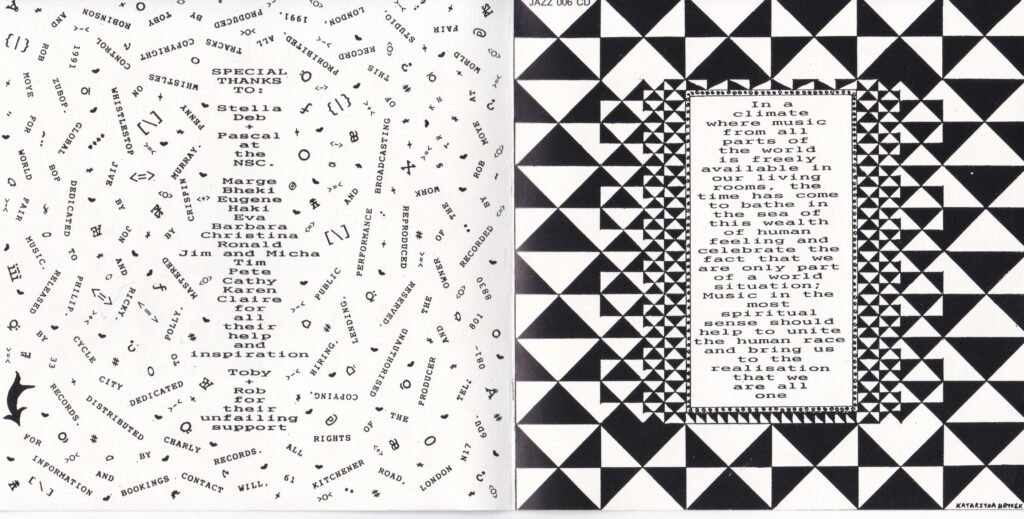 SPECIAL
THANKS
TO:
Stella
Deb
+
Pascal
at
the
NSC.
Marge
Bheki
Eugene
Haki
Eva
Barbara
Christina
Ronald
Jim and Micha
Tim
Pete
Cathy
Karen
Claire
for
all
their
help
and
inspiration
Toby
+
Rob
for
their
unfailing
support
FOR INFORMATION AND BOOKINGS CONTACT WILL, 61 KITCHENER ROAD, LONDON N17 6DU. TEL: 081-801 8830
RECORDED BY ROB MOYE AT WORLD FAIR STUDIO LONDON, 1991.
PRODUCED BY TOBY ROBINSON AND ROB MOYE FOR WORLD FAIR MUSIC.
RELEASED BY 33 RECORDS.
DISTRIBUTED BY CHARLY RECORDS.
ALL RIGHTS OF THE PRODUCER AND THE OWNER OF THE WORK REPRODUCED RESERVED.
UNAUTHORISED COPING, HIRING, LENDING, PUBLIC PERFORMANCE AND BROADCASTING OF THIS RECORD PROHIBITED.
ALL TRACKS COPYRIGHT CONTROL 1991 ZUBOP.
GLOBAL BOP DEDICATED TO PHILIP.
CYCLE CITY DEDICATED TO POLLY.
MASTERED BY CRISPIN MURRAY.
PENNY WHISTLES ON WHISTLESTOP JIVE BY JON AND RICKY.
JAZZ 006 CD
In a
climate
where music
from all
parts of
the world
is freely
available in
our living
rooms, the
time has come
to bathe in
the sea of
this wealth
of human
feeling and
celebrate the
fact that we
are only part
of a world
situation;
Music in the
most
spiritual
sense should
help to unite
the human race
and bring us
to the
realisation
that we
are all
one
KATARZYNA HRYCEK